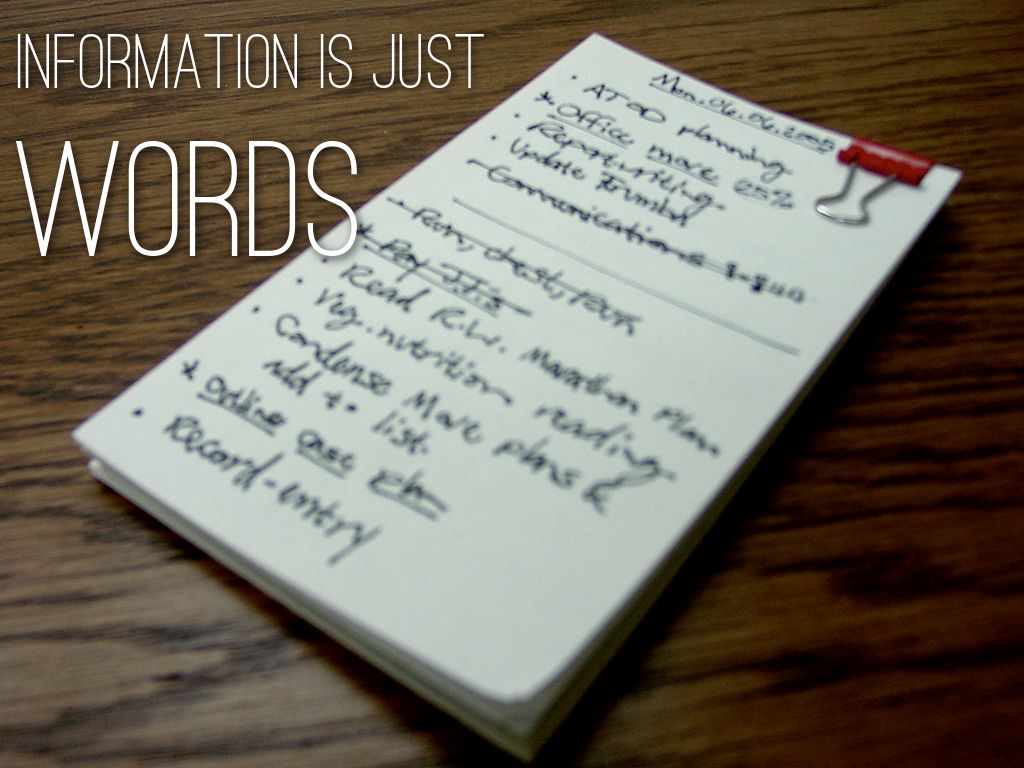 INFORMATION IS JUST
WORDS
Mon. 06.06.2005
• ATOD planning
* Office move 25%
• Report writing
• Update
- Communications
- Run, chest,
* Pay
• Read R.W. Marathon Plan
• Veg. nutrition reading
• Condense Move plans &
add to list.
* Outline case plan
• Record-entry